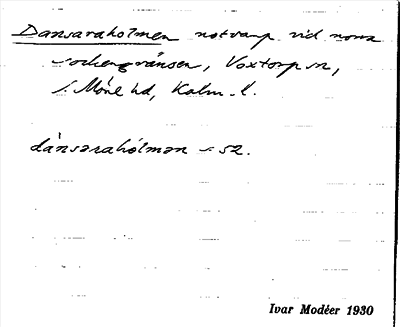 Dansaraholmen notvarp vid norra
sockengränsen, Voxtorp sn,
S. Möre hd, Kalm. l.
dánsarahólmən s 52.
Ivar Modéer 1930